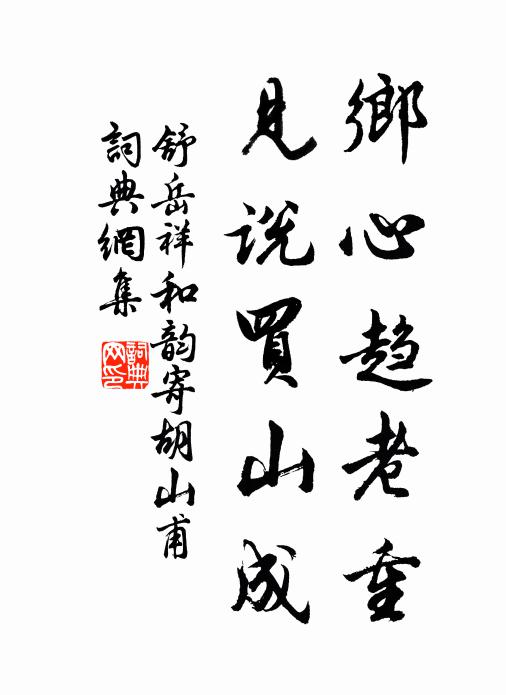 鄉心趨老重
見說買山成
舒岳祥和韵寄胡山甫
詞典網集
詞典網印